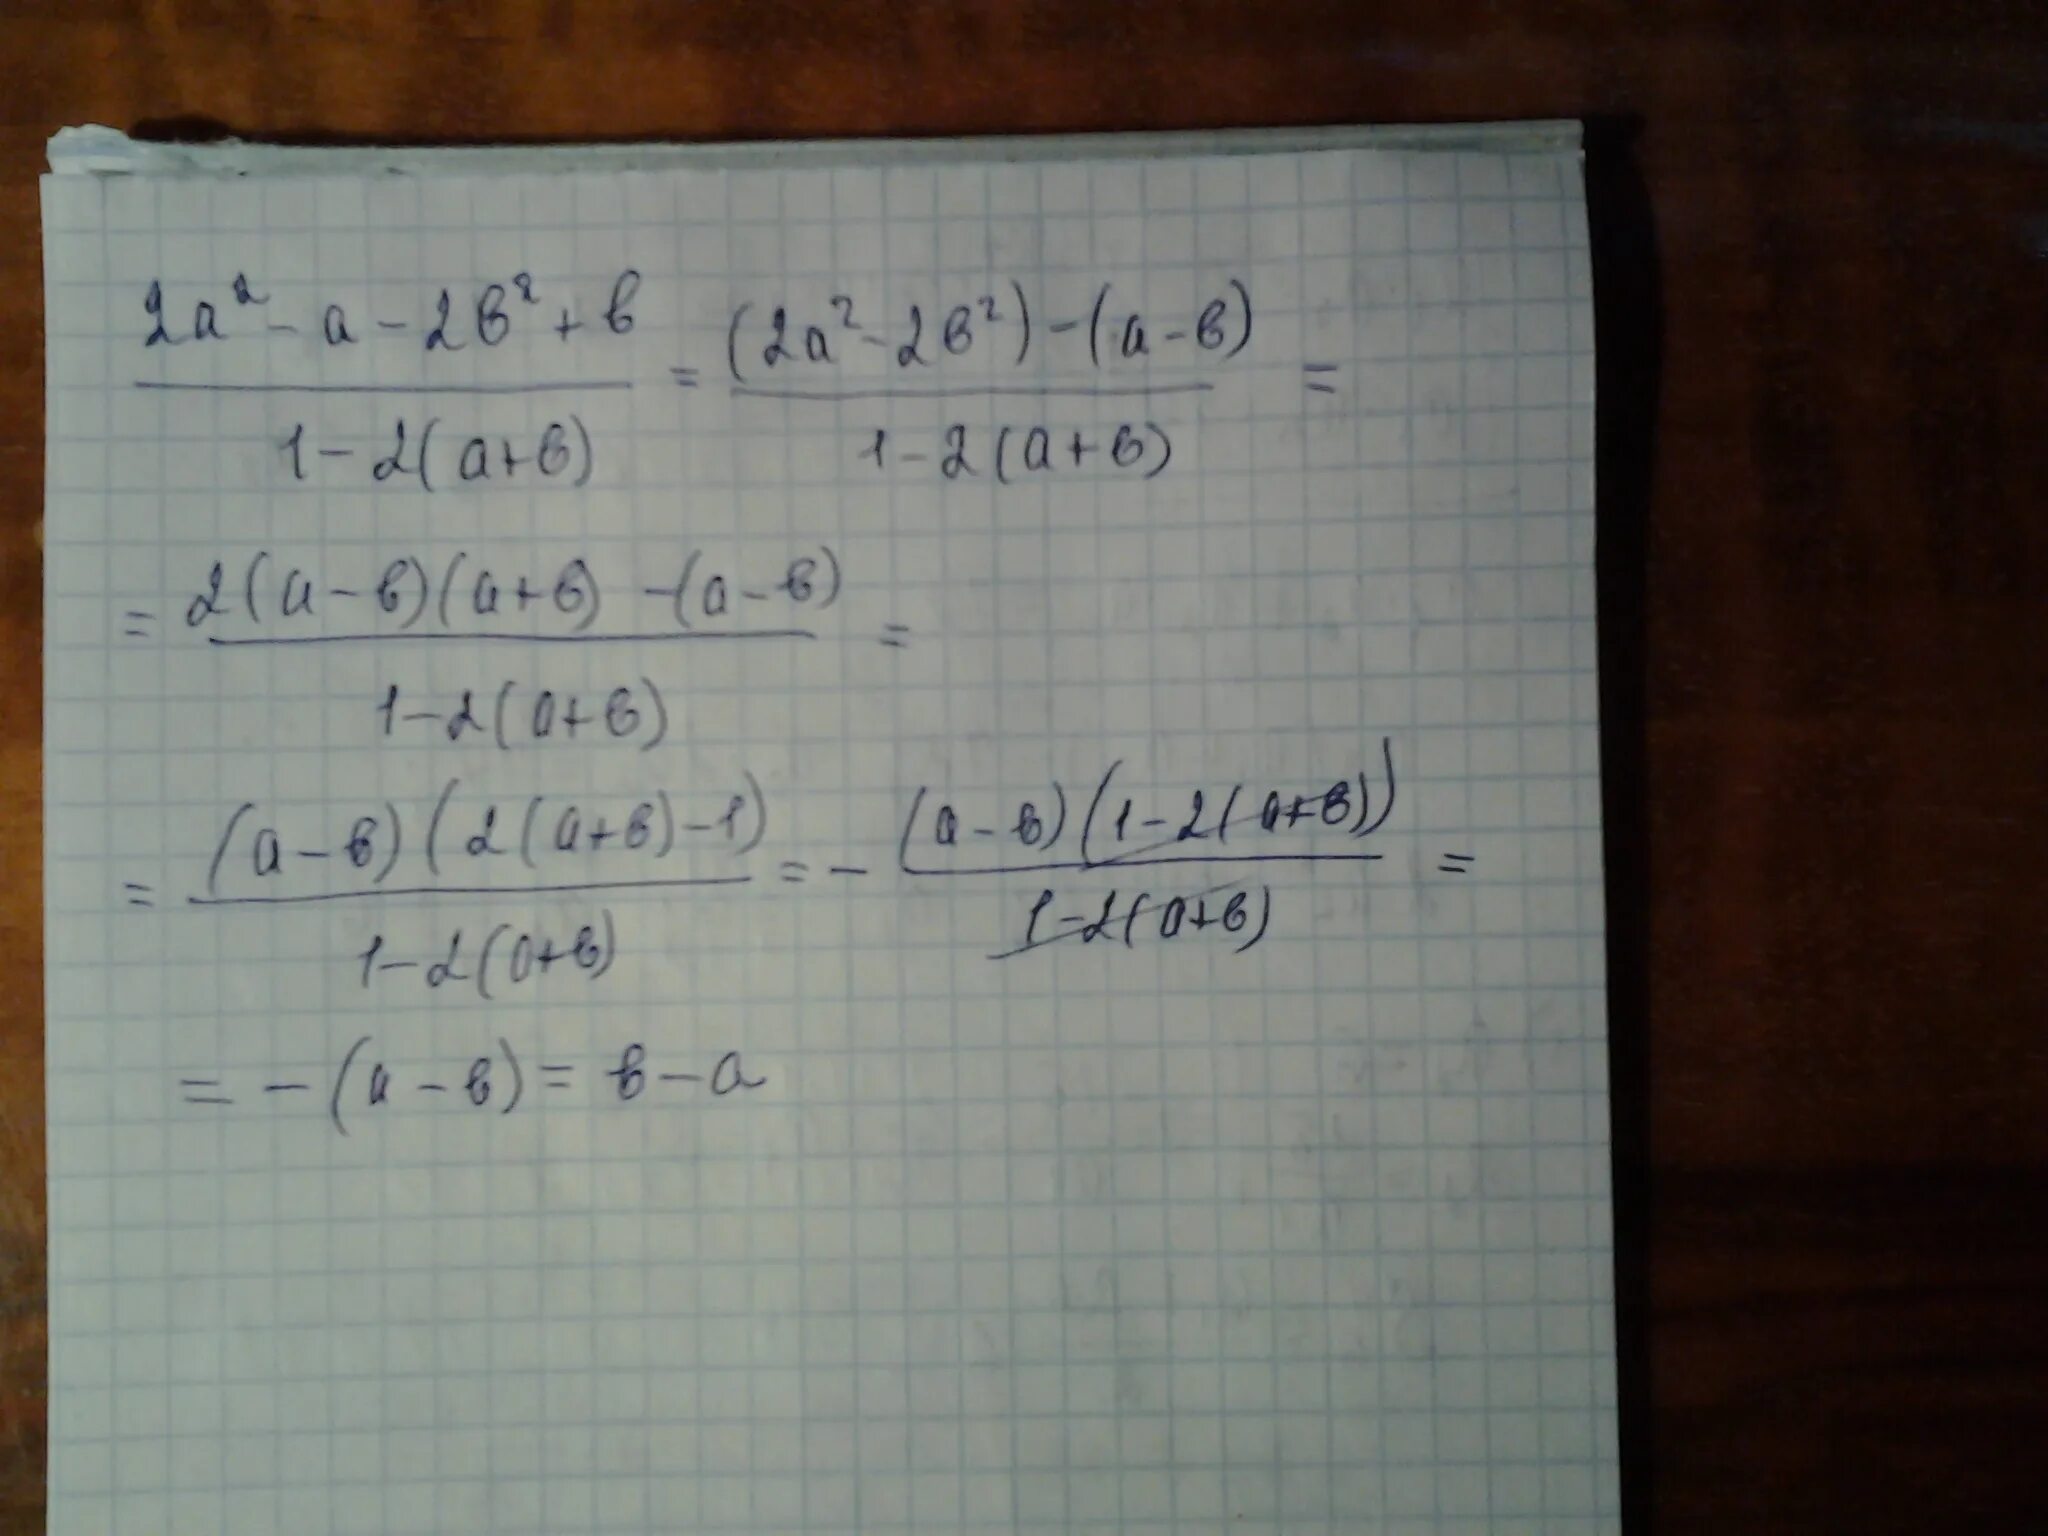 (2a² - a - 2в² + в)/(1 - 2(a + в)) = ((2a² - 2в²) - (a - в))/(1 - 2(a + в)) =
= (2(a - в)(a + в) - (a - в))/(1 - 2(a + в)) =
= ((a - в)(2(a + в) - 1))/(1 - 2(a + в)) = - ((a - в)(1 - 2(a + в)))/(1 - 2(a + в)) =
= - (a - в) = в - a